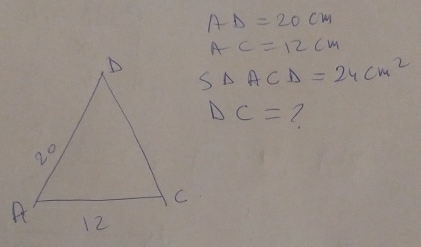 AD = 20 cm
AC = 12 cm
SDACD = 24 cm²
DC = ?
D
20
A
C
12